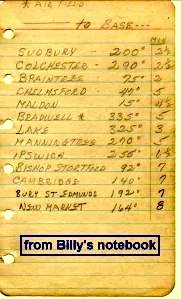 * AIR FIELD
to BASE---
MILES
SUDBURY - 200° 2½
COLCHESTER - 290° 2½
BRAINTREE 75° 2
CHELMSFORD - 40° 5
MALDON 15° 4½
BRADWELL * 335° 5
LAKE 325° 3
MANNINGTREE 270° 5
IPSWICH 256° 6½
BISHOP STORTFORD 92° 7
CAMBRIDGE 140° 7
BURY ST. EDMUNDS 192° 7
NEW MARKET 164° 8
from Billy's notebook